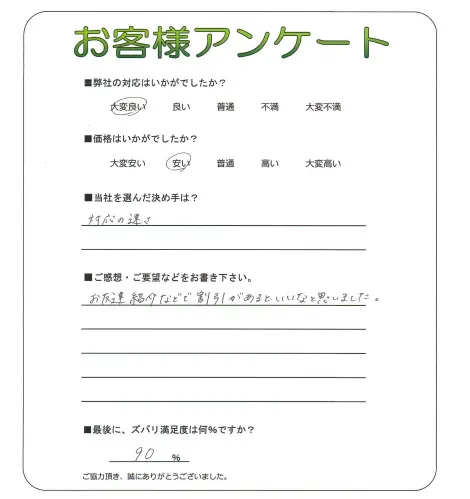 お客様アンケート
■弊社の対応はいかがでしたか?
大変良い 良い 普通 不満 大変不満
■価格はいかがでしたか?
大変安い 安い 普通 高い 大変高い
■当社を選んだ決め手は?
対応の速さ
■ご感想・ご要望などをお書き下さい。
お友達紹介などで割引があるといいなと思いました。
■最後に、ズバリ満足度は何%ですか?
90 %
ご協力頂き、誠にありがとうございました。